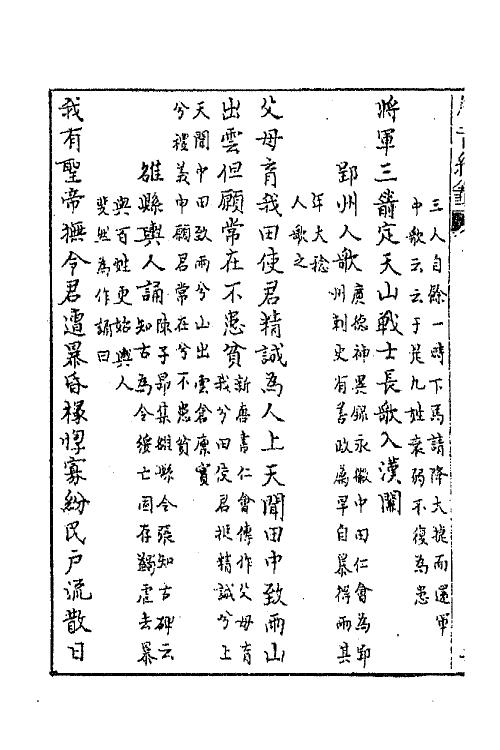 三人自餘一時下馬請降大捷而還軍
中歌云云于是九姓衰弱不復為患
將軍三箭定天山戰士長歌入漢關
鄞州人歌
廣德神異錄永徽中田仁會為鄞
州刺史有善政屬旱自暴得雨其
年大稔
人歌之
父母育我田使君精誠為人上天聞田中致雨山
出雲但願常在不患貧
新唐書仁會傳作父母育
我兮田使君挺精誠兮上
天聞中田致雨兮山出雲倉廩實
兮禮義申願君常在兮不患貧
雒縣輿人誦
陳子昻集雒縣令張知古碑云
知古為令綏亡固存蠲虐去暴
與百姓更始輿人
斐然為作誦曰
我有聖帝撫令君遭暴昏椽惸寡紛民戶流散日